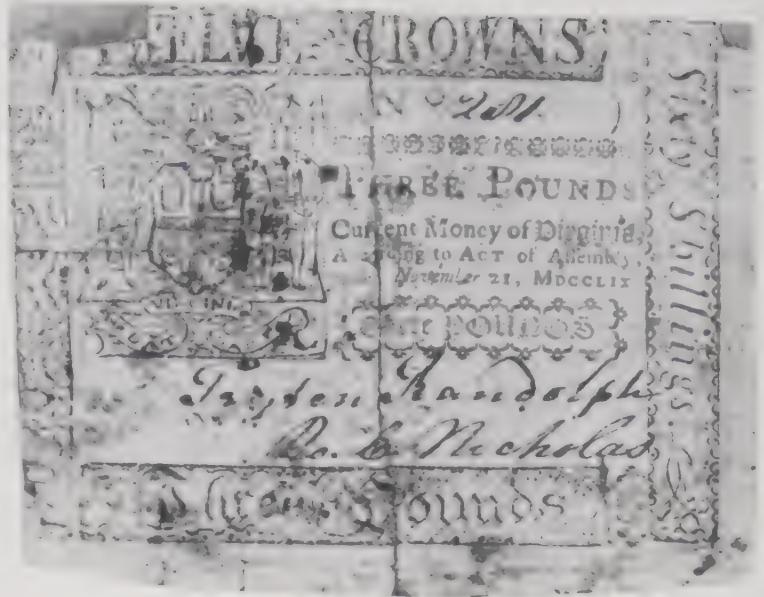 CROWNS
No 2481
THREE POUNDS
Current Money of Virginia,
According to ACT of Assembly,
November 21, MDCCLIX
POUNDS
Peyton Randolph
Ro. C. Nicholas
Three Pounds
Sixty Shillings